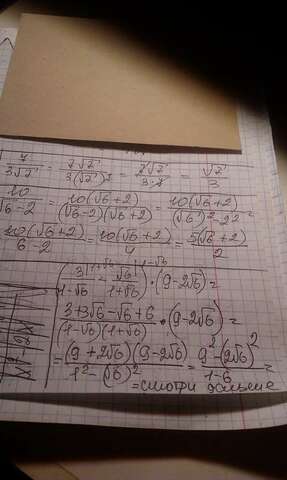 7/(3√2) = 2√2/(3(√2)²) = 2√2/(3·2) = √2/3
10/(√6-2) = 10(√6+2)/((√6-2)(√6+2)) = 10(√6+2)/((√6)²-2²) =
10(√6+2)/(6-2) = 10(√6+2)/4 = 5(√6+2)/2
(3^(1+√6)/(1-√6) - √6^(1-√6)/(1+√6)) · (9-2√6) =
(3+3√6-√6+6)/((1-√6)(1+√6)) · (9-2√6) =
= (9+2√6)(9-2√6)/(1²-(√6)²) = (9²-(2√6)²)/(1-6) =
= смотри дальше